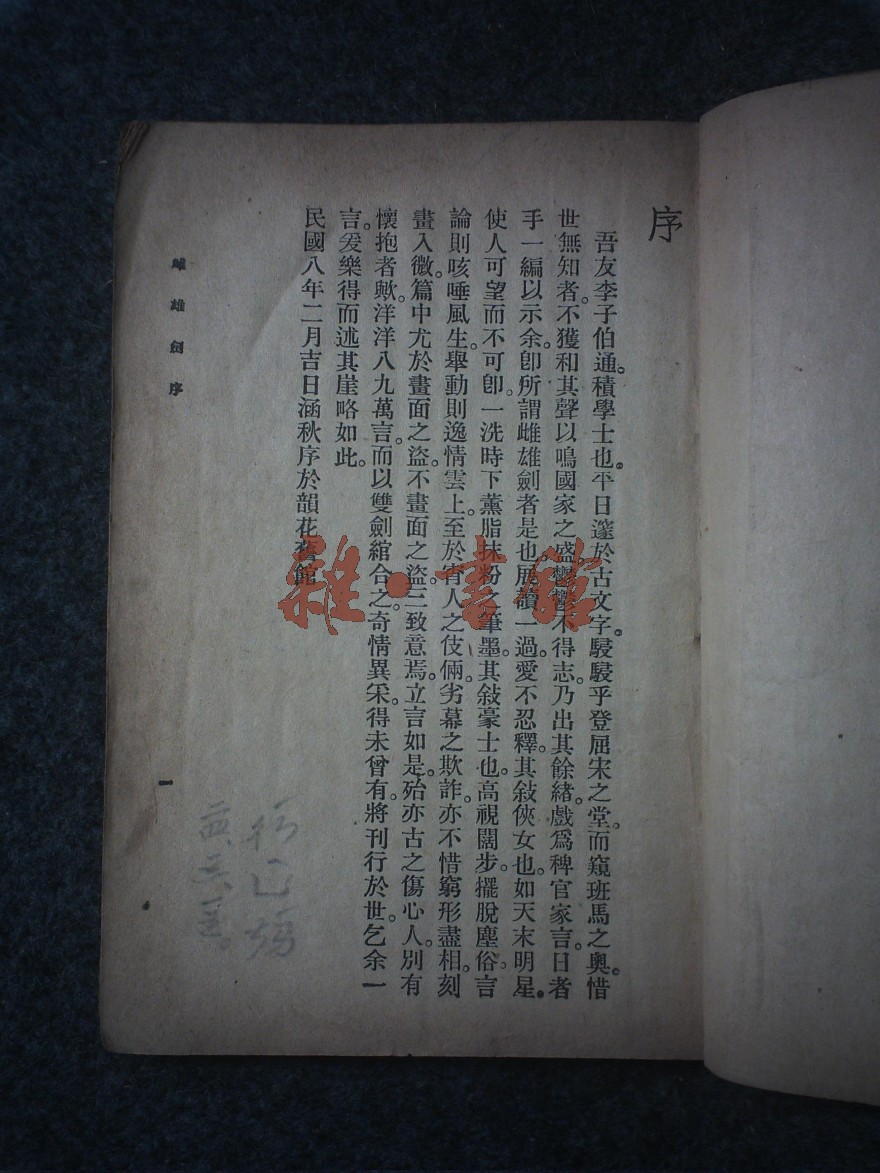 序
吾友李子伯通。積學士也。平日邃於古文字。駸駸乎登屈宋之堂。而窺班馬之奧。惜
世無知者。不獲和其聲以鳴國家之盛。鬱鬱不得志。乃出其餘緒。戲爲稗官家言。日者
手一編以示余。卽所謂雌雄劍者是也。展讀一過。愛不忍釋。其敍俠女也。如天末明星。
使人可望而不可卽。一洗時下薰脂抹粉之筆墨。其敍豪士也。高視闊步。擺脫塵俗。言
論則咳唾風生。舉動則逸情雲上。至於宵人之伎倆。劣幕之欺詐。亦不惜窮形盡相。刻
畫入微。篇中尤於畫面之盜。不畫面之盜。三致意焉。立言如是。殆亦古之傷心人。別有
懷抱者歟。洋洋八九萬言。而以雙劍綰合之。奇情異采。得未曾有。將刊行於世。乞余一
言。爰樂得而述其崖略如此。
民國八年二月吉日涵秋序於韻花舊館
雌雄劍序
一
雜·書館